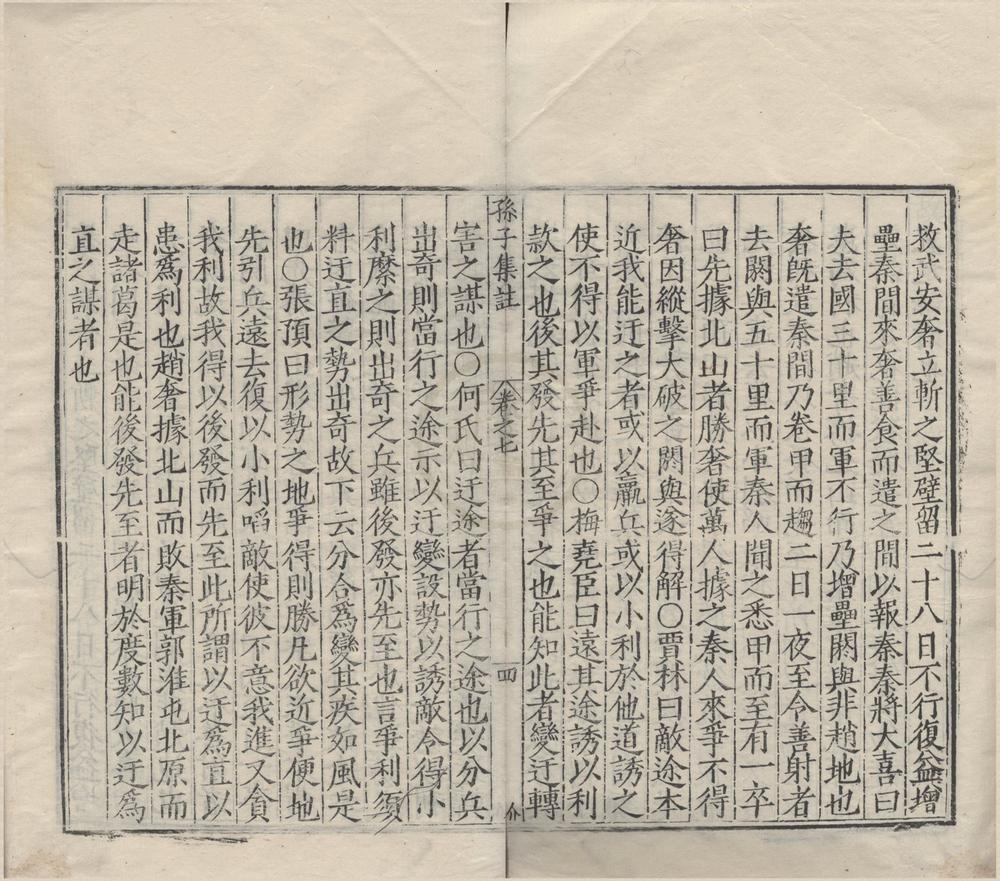 救武安奢立斬之堅壁留二十八日不行復益增
壘秦間來奢善食而遣之間以報秦秦將大喜曰
夫去國三十里而軍不行乃增壘閼與非趙地也
奢旣遣秦間乃卷甲而趨二日一夜至令善射者
去閼與五十里而軍秦人聞之悉甲而至有一卒
曰先據北山者勝奢使萬人據之秦人來爭不得
奢因縱擊大破之閼與遂得解○賈林曰敵途本
近我能迂之者或以羸兵或以小利於他道誘之
使不得以軍爭赴也○梅堯臣曰遠其途誘以利
款之也後其發先其至爭之也能知此者變迂轉
孫子集註
卷之七
四
介
害之謀也○何氏曰迂途者當行之途也以分兵
出奇則當行之途示以迂變設勢以誘敵令得小
利縻之則出奇之兵雖後發亦先至也言爭利須
料迂直之勢出奇故下云分合爲變其疾如風是
也○張預曰形勢之地爭得則勝凡欲近爭便地
先引兵遠去復以小利啗敵使彼不意我進又貪
我利故我得以後發而先至此所謂以迂爲直以
患爲利也趙奢據北山而敗秦軍郭淮屯北原而
走諸葛是也能後發先至者明於度數知以迂爲
直之謀者也